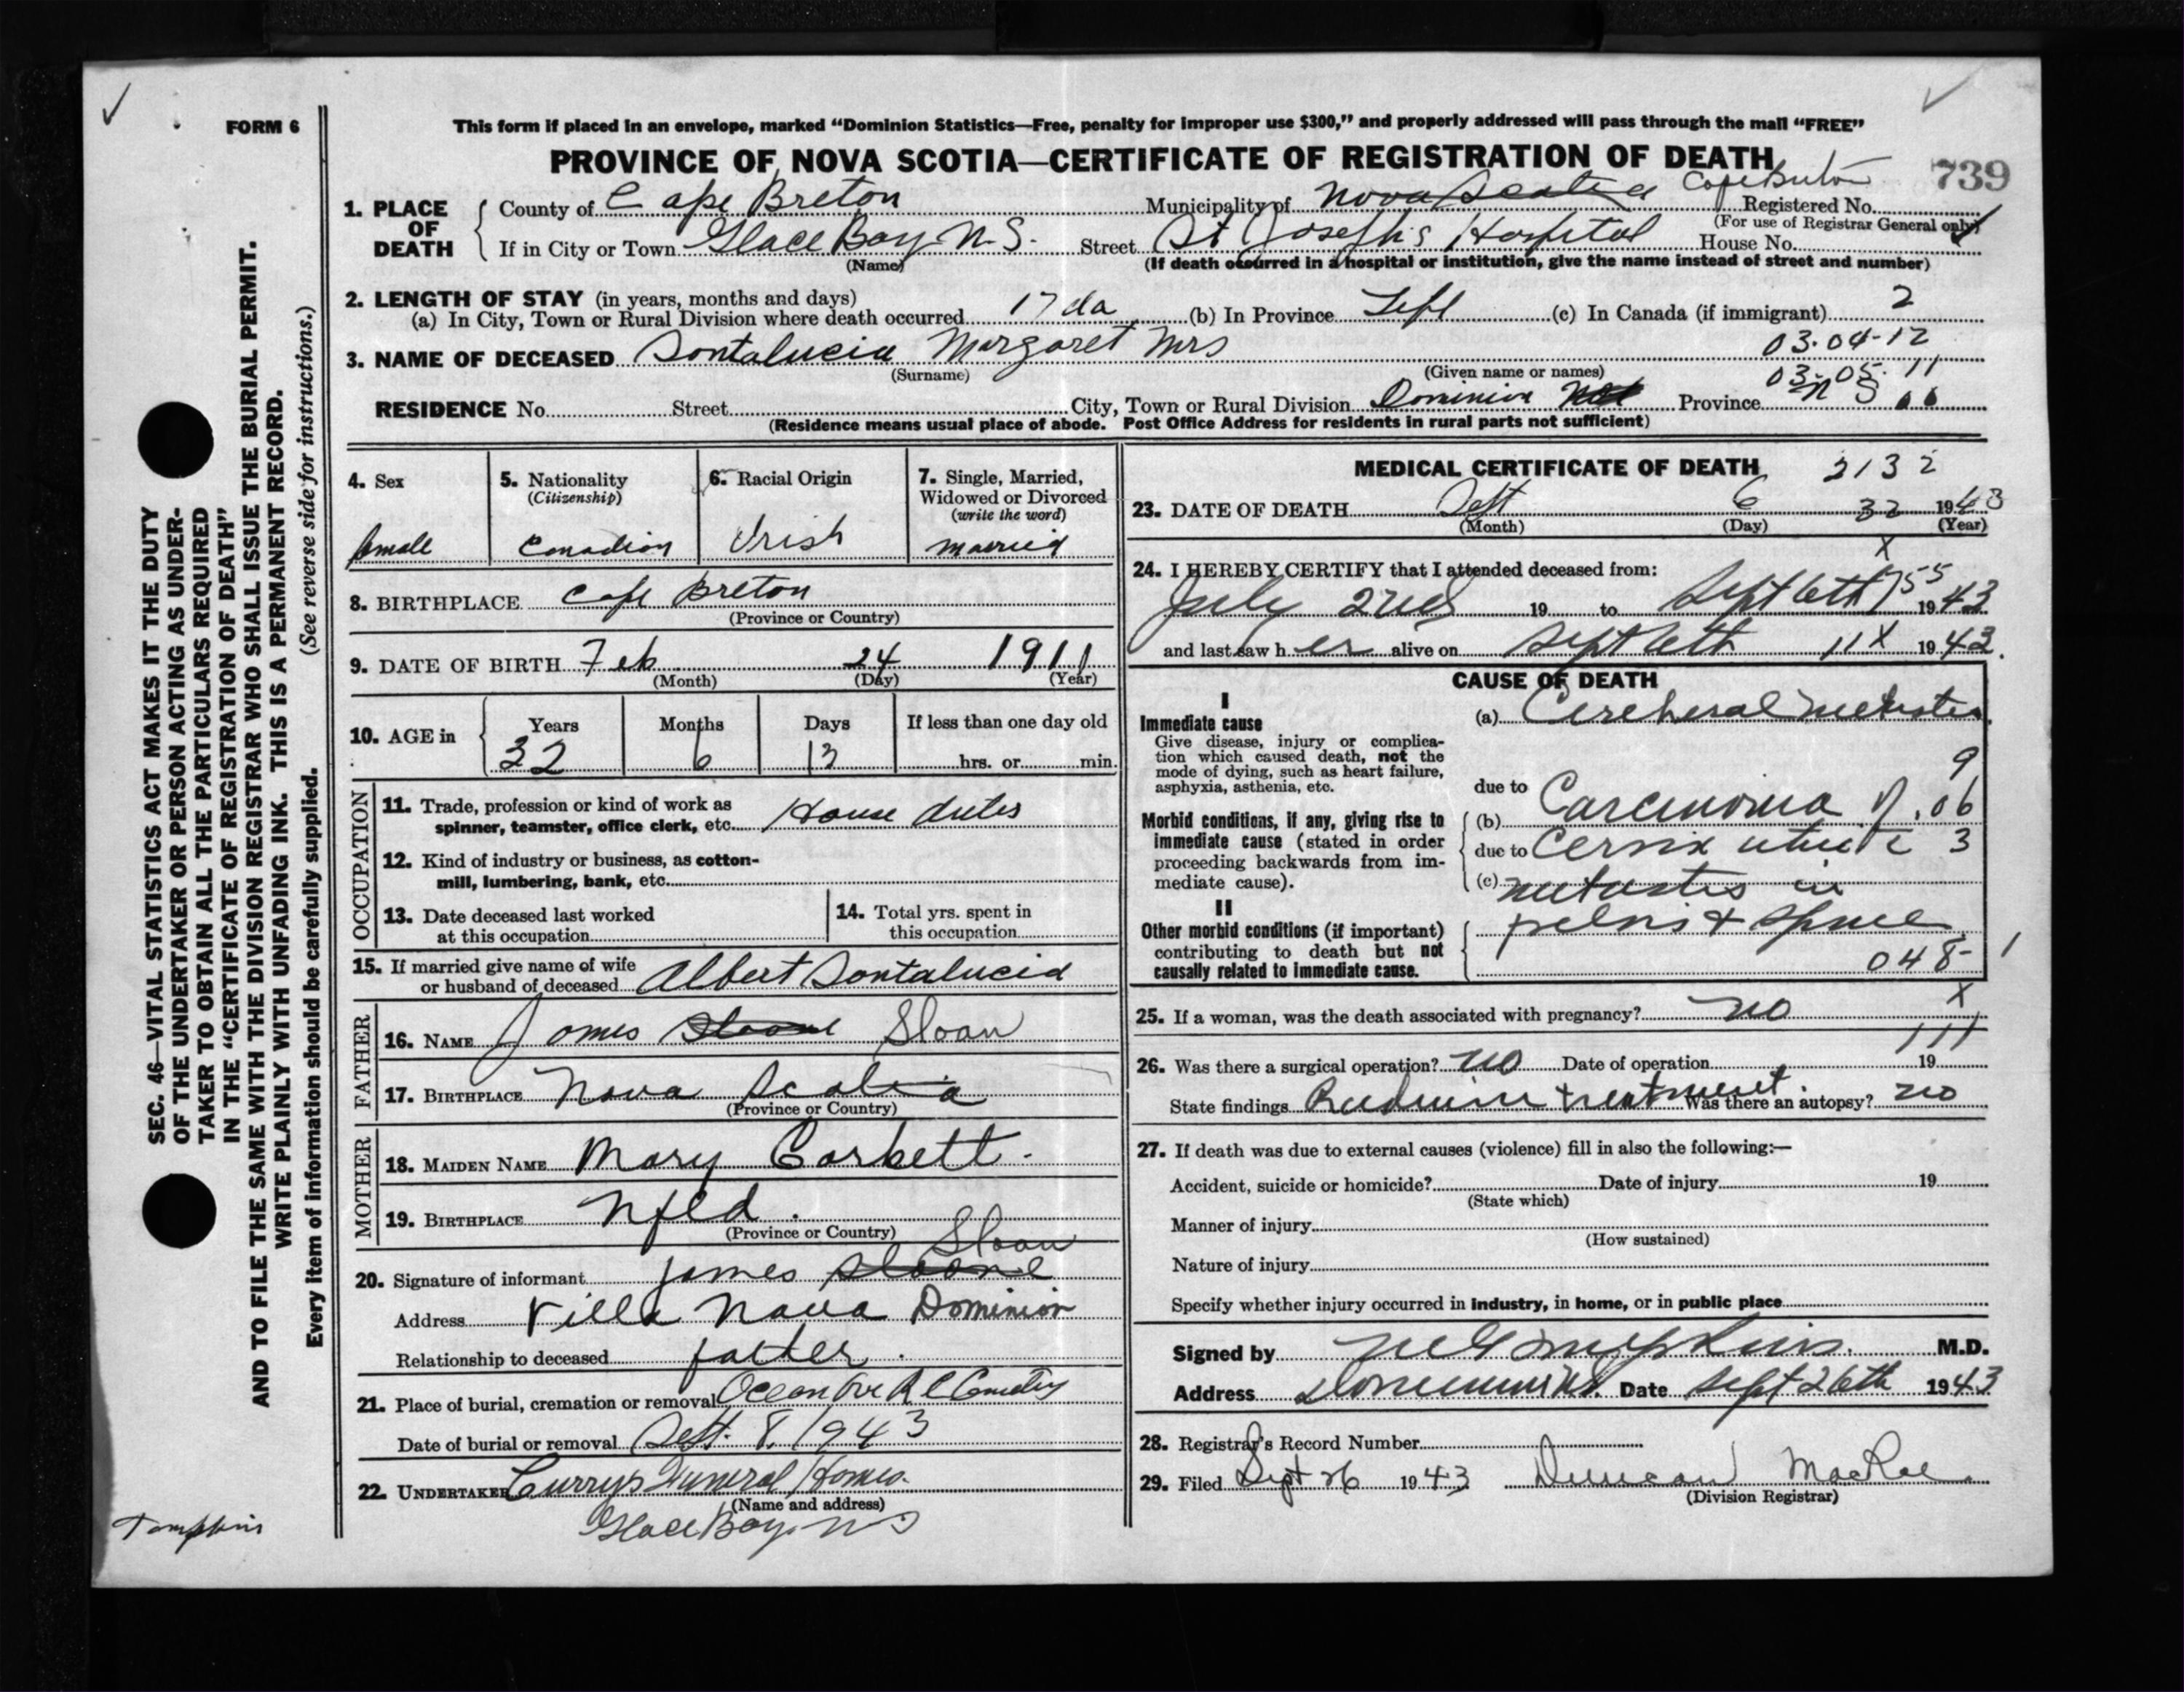 FORM 6
This form if placed in an envelope, marked “Dominion Statistics—Free, penalty for improper use $300,” and properly addressed will pass through the mail “FREE”
PROVINCE OF NOVA SCOTIA—CERTIFICATE OF REGISTRATION OF DEATH
739
1. PLACE OF DEATH
County of Cape Breton Municipality of Nova Scotia Cape Breton Registered No.
(For use of Registrar General only)
If in City or Town Glace Bay N.S. Street St Joseph's Hospital House No.
(Name)
(If death occurred in a hospital or institution, give the name instead of street and number)
2. LENGTH OF STAY (in years, months and days)
(a) In City, Town or Rural Division where death occurred 17 da (b) In Province (c) In Canada (if immigrant) 2
03-04-12
3. NAME OF DECEASED Santalucia Margaret Mrs
(Surname) (Given name or names)
03-05-11
RESIDENCE No. Street City, Town or Rural Division Dominion Province N S
(Residence means usual place of abode. Post Office Address for residents in rural parts not sufficient)
4. Sex
female
5. Nationality
(Citizenship)
Canadian
6. Racial Origin
Irish
7. Single, Married,
Widowed or Divorced
(write the word)
married
8. BIRTHPLACE Cape Breton
(Province or Country)
9. DATE OF BIRTH Feb 24 1911
(Month) (Day) (Year)
10. AGE in
Years Months Days If less than one day old
32 6 13 hrs. or min.
OCCUPATION
11. Trade, profession or kind of work as
spinner, teamster, office clerk, etc. House duties
12. Kind of industry or business, as cotton-
mill, lumbering, bank, etc.
13. Date deceased last worked
at this occupation
14. Total yrs. spent in
this occupation
15. If married give name of wife
or husband of deceased Albert Santalucia
FATHER
16. NAME James Sloane Sloan
17. BIRTHPLACE Nova Scotia
(Province or Country)
MOTHER
18. MAIDEN NAME Mary Corbett.
19. BIRTHPLACE Nfld.
(Province or Country)
Sloan
20. Signature of informant James Sloane
Address Villa Nova Dominion
Relationship to deceased father.
21. Place of burial, cremation or removal R C Cemetery
Date of burial or removal Sept. 8, 1943
22. UNDERTAKER Currys Funeral Homes.
(Name and address)
Glace Bay. N S
MEDICAL CERTIFICATE OF DEATH 2132
23. DATE OF DEATH Sept 6 32 1943
(Month) (Day) (Year)
X
24. I HEREBY CERTIFY that I attended deceased from:
July 2nd 19 to Sept 6th 55 1943
and last saw h er alive on Sept 6th 11 X 1943.
CAUSE OF DEATH
I
Immediate cause
Give disease, injury or complica-
tion which caused death, not the
mode of dying, such as heart failure,
asphyxia, asthenia, etc.
(a) Cerebral metastes
9
due to
Morbid conditions, if any, giving rise to
immediate cause (stated in order
proceeding backwards from im-
mediate cause).
(b) Carcinoma of .06
due to Cervix uteri c 3
(c) metastes in
pelvis & spine
II
Other morbid conditions (if important)
contributing to death but not
causally related to immediate cause.
048- 1
25. If a woman, was the death associated with pregnancy? no X
111
26. Was there a surgical operation? no Date of operation 19
State findings Radium treatment. Was there an autopsy? no
27. If death was due to external causes (violence) fill in also the following:—
Accident, suicide or homicide? Date of injury 19
(State which)
Manner of injury
(How sustained)
Nature of injury
Specify whether injury occurred in industry, in home, or in public place
Signed by Tompkins. M.D.
Address Dominion N.S. Date Sept 26th 1943
28. Registrar's Record Number
29. Filed Sept 26 1943 Duncan MacRae
(Division Registrar)
SEC. 46—VITAL STATISTICS ACT MAKES IT THE DUTY
OF THE UNDERTAKER OR PERSON ACTING AS UNDER-
TAKER TO OBTAIN ALL THE PARTICULARS REQUIRED
IN THE “CERTIFICATE OF REGISTRATION OF DEATH”
AND TO FILE THE SAME WITH THE DIVISION REGISTRAR WHO SHALL ISSUE THE BURIAL PERMIT.
WRITE PLAINLY WITH UNFADING INK. THIS IS A PERMANENT RECORD.
Every item of information should be carefully supplied. (See reverse side for instructions.)
Tompkins